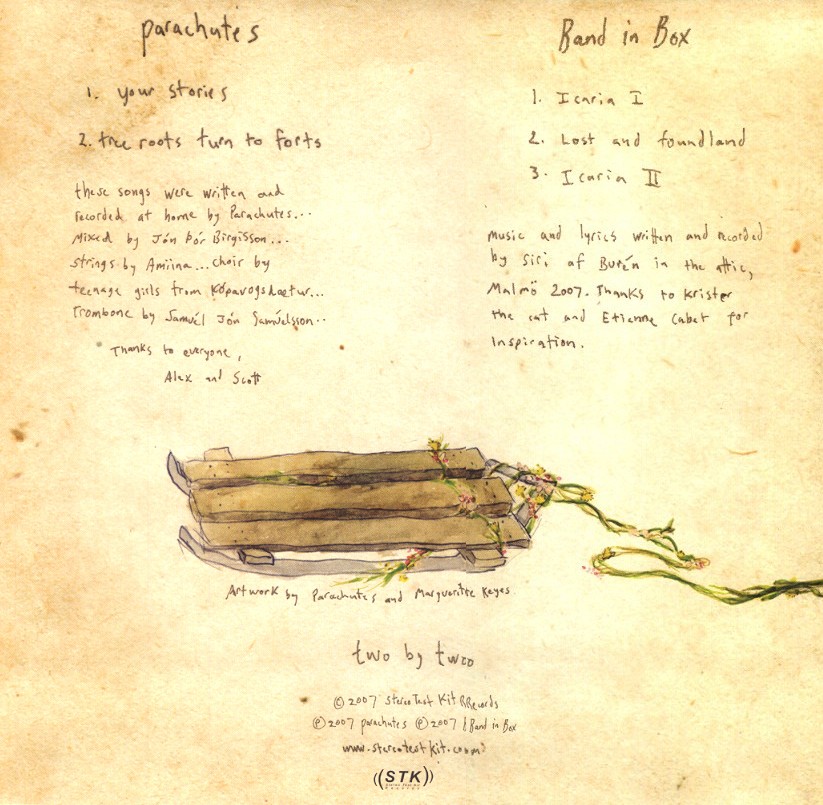 parachutes
1. your stories
2. tree roots turn to forts
these songs were written and
recorded at home by Parachutes...
mixed by Jón Þór Birgisson...
strings by Amiina... choir by
teenage girls from Kópavogsdaetur...
trombone by Samúel Jón Samúelsson..
Thanks to everyone,
Alex and Scott
Band in Box
1. Icaria I
2. Lost and foundland
3. Icaria II
music and lyrics written and recorded
by Siri af Burén in the attic,
Malmö 2007. Thanks to Krister
the cat and Etienne Cabet for
inspiration.
Artwork by Parachutes and Marguerite Keyes.
two by two
© 2007 Stereo Test Kit Records
℗ 2007 parachutes ℗ 2007 Band in Box
www.stereotestkit.com
((STK))
Stereo Test Kit
Records